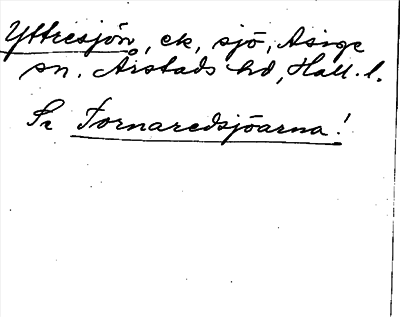 Yttresjön, ek, sjö, Asige
sn, Årstads hd, Hall. l.
Se Tornaredsjöarna!